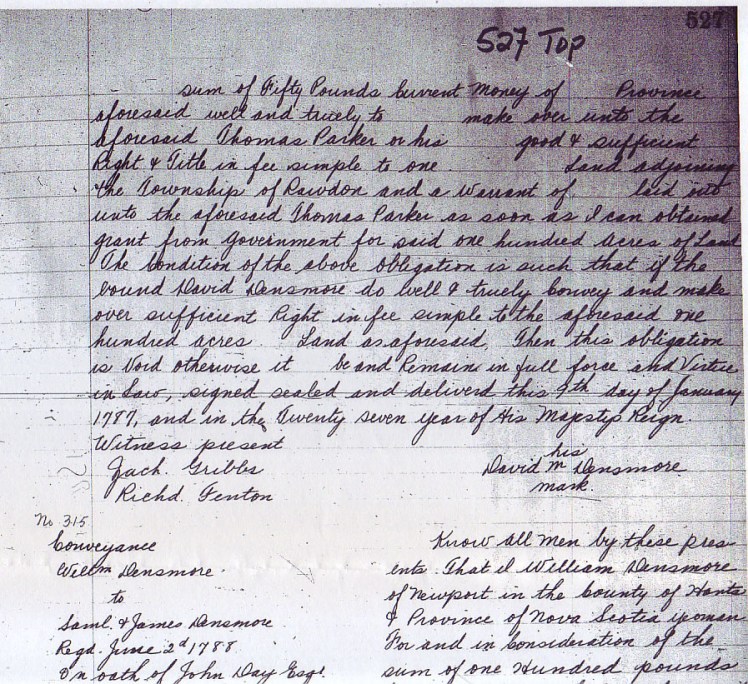 527
527 Top
sum of Fifty Pounds Current Money of Province
aforesaid well and truely to make over unto the
aforesaid Thomas Parker or his good & sufficient
Right & Title in fee simple to one Land adjoining
the Township of Rawdon and a Warrant of laid out
unto the aforesaid Thomas Parker as soon as I can obtained
grant from Government for said one hundred Acres of Land
The Condition of the above Obligation is such that if the
bound David Densmore do well & truely Convey and make
over sufficient Right in fee simple to the aforesaid one
hundred acres. Land as aforesaid, Then this obligation
is Void otherwise it be and Remains in full force and Virtue
in Law, signed sealed and deliverd this 9th day of January
1787, and in the Twenty seven year of His Majestys Reign.
Witness present
Zach. Gribbs
Richd. Fenton
his
David m Densmore
mark.
No 315
Conveyance
Willm Densmore
to
Saml. & James Densmore
Regd. June 2d 1788
On oath of John Day Esqr.
Know all men by these pres
ents That I William Densmore
of Newport in the County of Hants
& Province of Nova Scotia yeoman
For and in Consideration of the
sum of one Hundred pounds